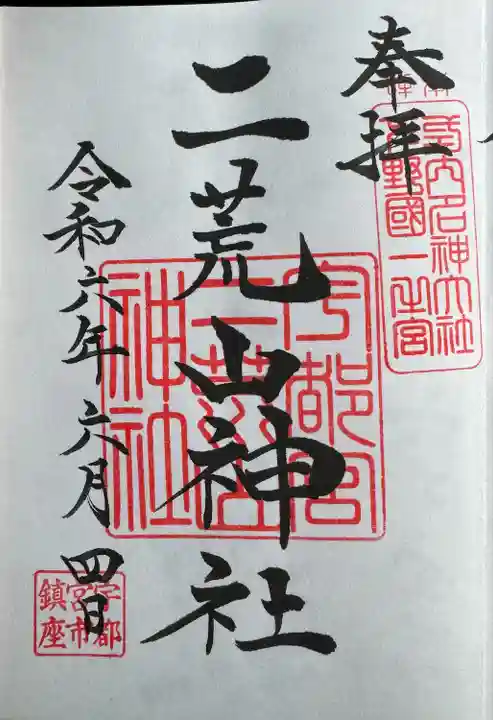 奉拝
延喜式内名神大社
下野國一之宮
二荒山神社
宇都宮
二荒山
神社
令和六年六月四日
宇都
宮市
鎮座